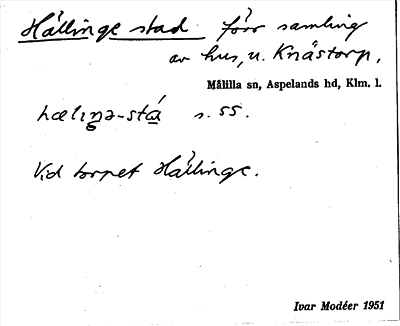 Hällinge stad förr samling
av hus, u. Knästorp,
Målilla sn, Aspelands hd, Klm. l.
hæliŋə-stá s. 55.
Vid torpet Hällinge.
Ivar Modéer 1951